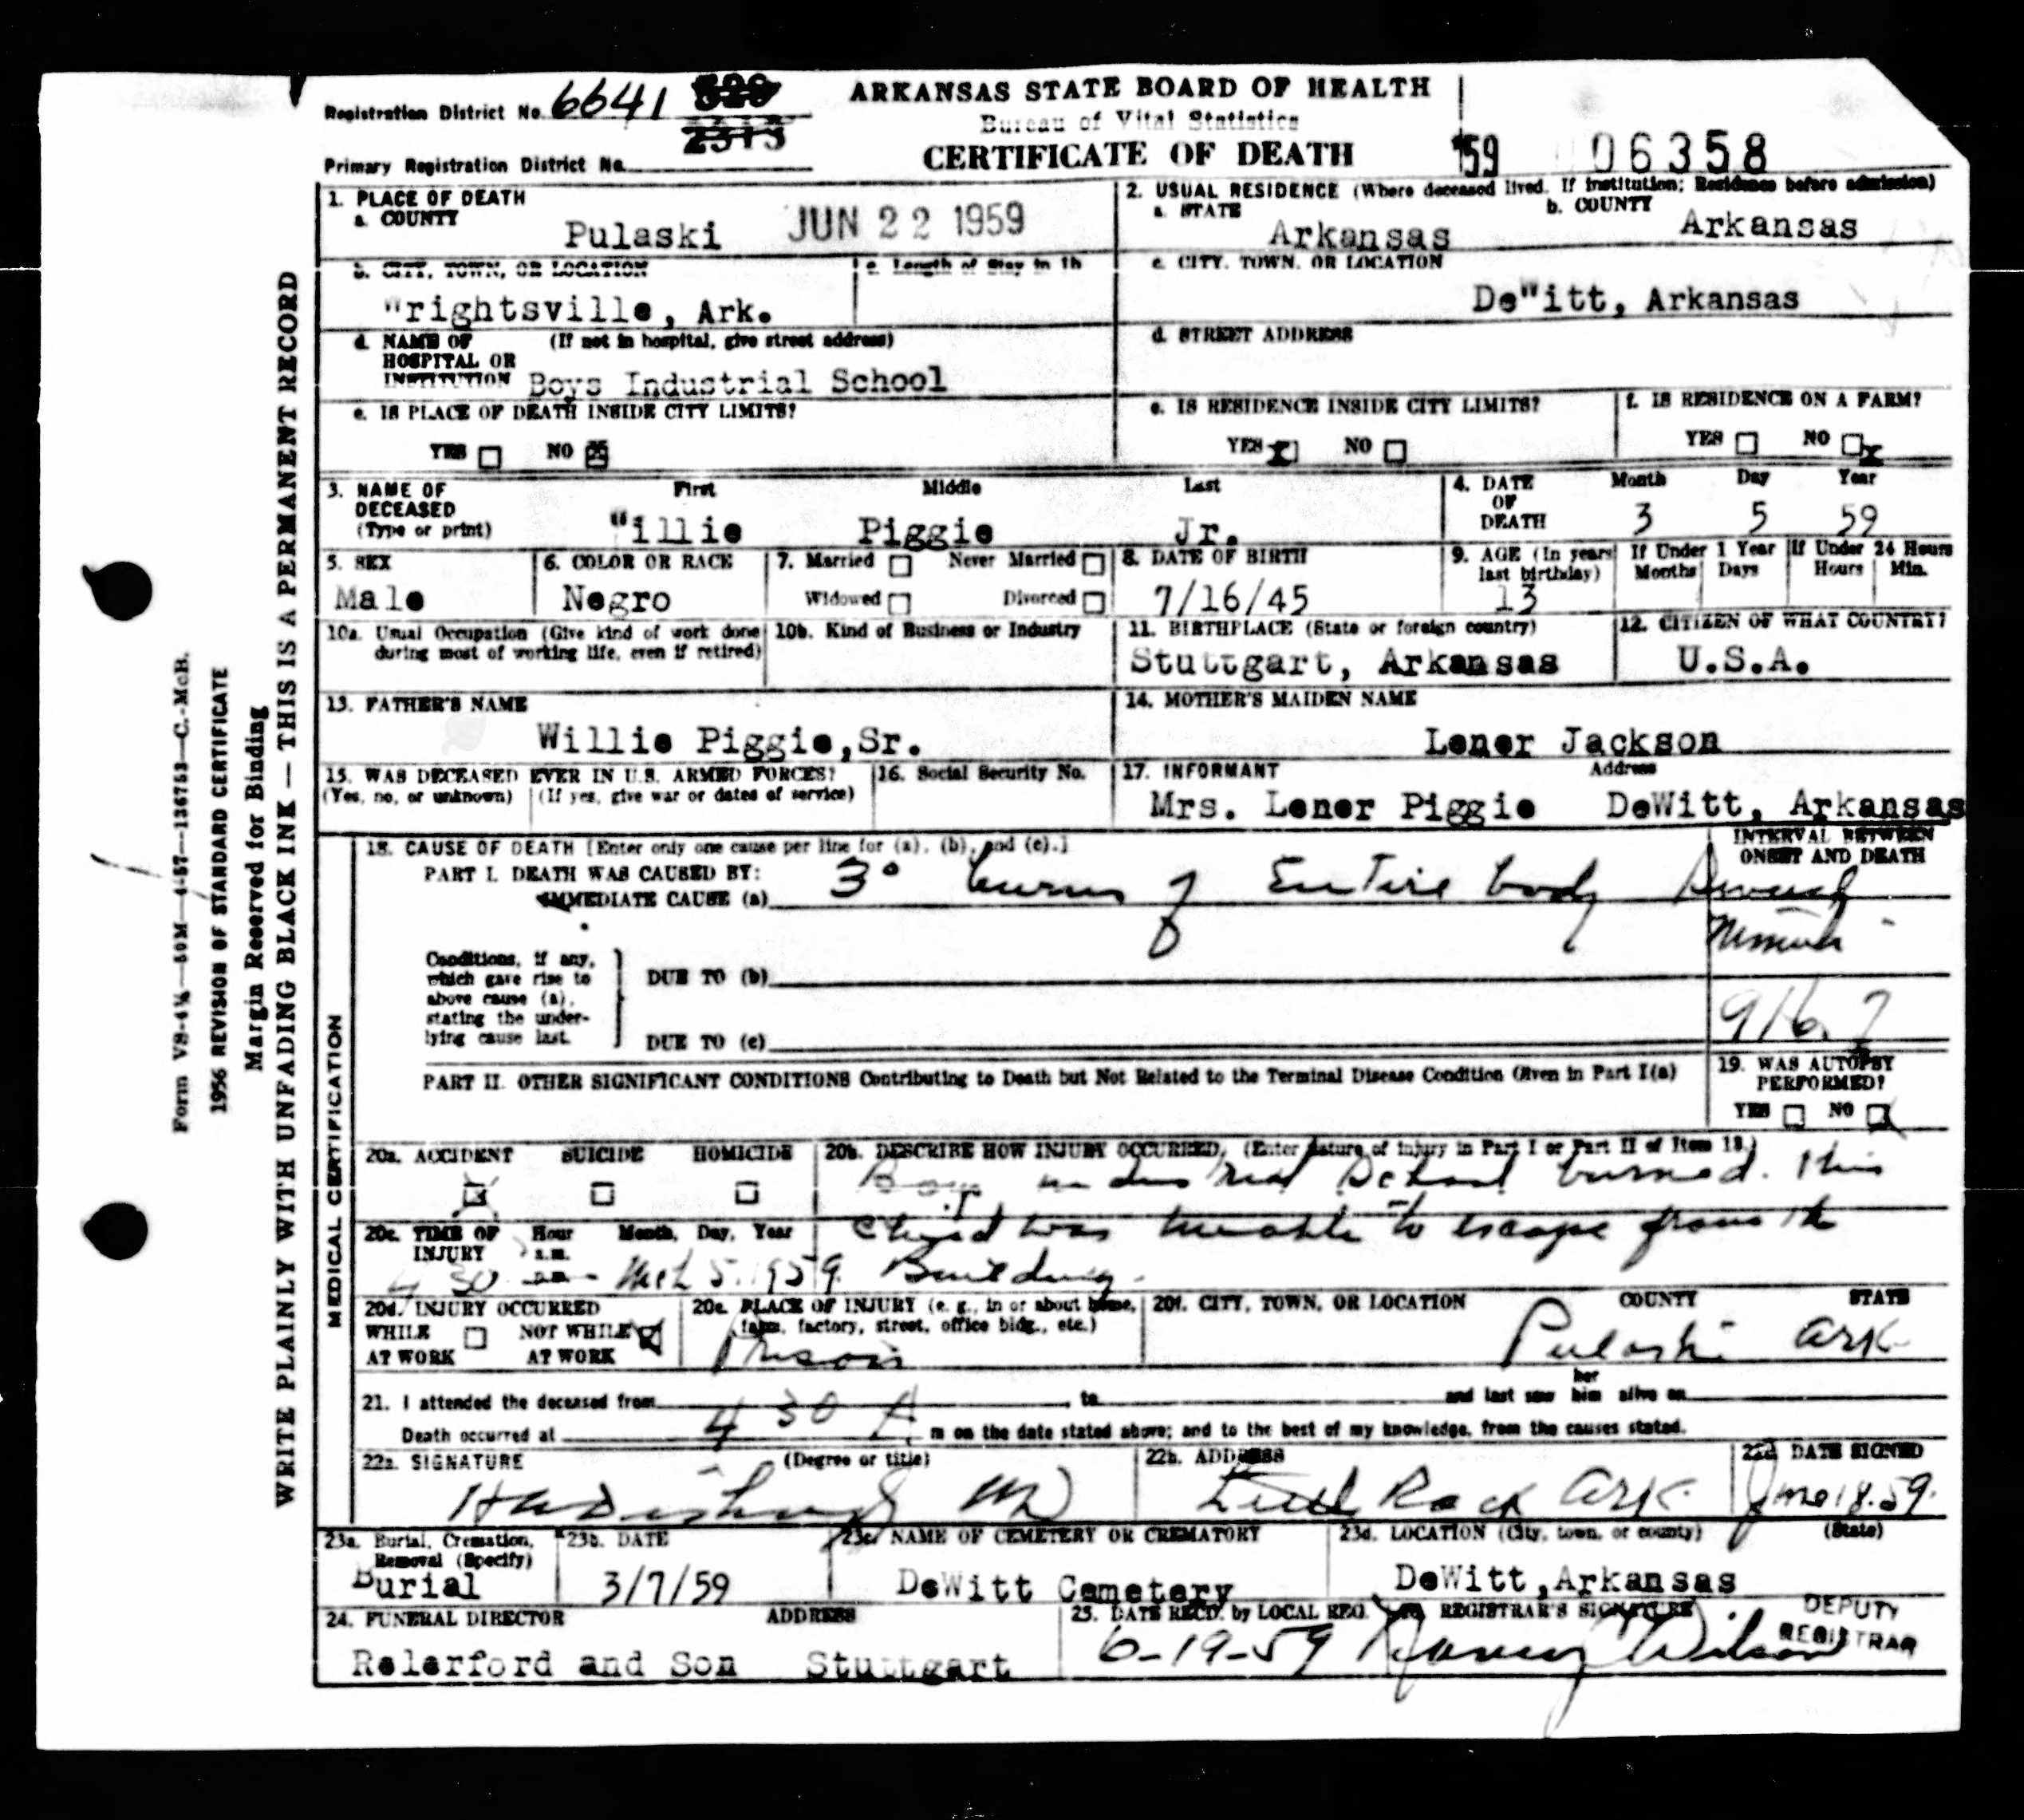 Registration District No. 6641 529
2313
Primary Registration District No.
ARKANSAS STATE BOARD OF HEALTH
Bureau of Vital Statistics
CERTIFICATE OF DEATH
'59 06358
1. PLACE OF DEATH
a. COUNTY Pulaski JUN 22 1959
2. USUAL RESIDENCE (Where deceased lived. If institution; Residence before admission)
a. STATE Arkansas b. COUNTY Arkansas
b. CITY, TOWN, OR LOCATION "rightsville, Ark.
c. Length of Stay in 1b
c. CITY, TOWN, OR LOCATION De"itt, Arkansas
d. NAME OF HOSPITAL OR INSTITUTION (If not in hospital, give street address) Boys Industrial School
d. STREET ADDRESS
e. IS PLACE OF DEATH INSIDE CITY LIMITS?
YES NO X
e. IS RESIDENCE INSIDE CITY LIMITS?
YES X NO
f. IS RESIDENCE ON A FARM?
YES NO X
3. NAME OF DECEASED (Type or print)
First Middle Last
"illie Piggie Jr.
4. DATE OF DEATH Month Day Year
3 5 59
5. SEX
Male
6. COLOR OR RACE
Negro
7. Married Never Married
Widowed Divorced
8. DATE OF BIRTH
7/16/45
9. AGE (In years last birthday)
13
If Under 1 Year Months Days
If Under 24 Hours Hours Min.
10a. Usual Occupation (Give kind of work done during most of working life, even if retired)
10b. Kind of Business or Industry
11. BIRTHPLACE (State or foreign country)
Stuttgart, Arkansas
12. CITIZEN OF WHAT COUNTRY?
U.S.A.
13. FATHER'S NAME
Willie Piggie,Sr.
14. MOTHER'S MAIDEN NAME
Lener Jackson
15. WAS DECEASED EVER IN U.S. ARMED FORCES?
(Yes, no, or unknown) (If yes, give war or dates of service)
16. Social Security No.
17. INFORMANT Address
Mrs. Lener Piggie DeWitt, Arkansas
18. CAUSE OF DEATH [Enter only one cause per line for (a), (b), and (c).]
INTERVAL BETWEEN ONSET AND DEATH
PART I. DEATH WAS CAUSED BY:
IMMEDIATE CAUSE (a) 3° burns of Entire body
Conditions, if any, which gave rise to above cause (a), stating the underlying cause last.
DUE TO (b)
DUE TO (c)
916.7
PART II. OTHER SIGNIFICANT CONDITIONS Contributing to Death but Not Related to the Terminal Disease Condition Given in Part I(a)
19. WAS AUTOPSY PERFORMED?
YES NO X
20a. ACCIDENT SUICIDE HOMICIDE
X
20b. DESCRIBE HOW INJURY OCCURRED. (Enter nature of injury in Part I or Part II of Item 18.)
Boys industrial School burned. This
child was unable to escape from the
Building.
20c. TIME OF INJURY Hour Month, Day, Year
a.m.
p.m.
4 30 Mch 5. 1959
20d. INJURY OCCURRED
WHILE AT WORK NOT WHILE AT WORK X
20e. PLACE OF INJURY (e. g., in or about home, farm, factory, street, office bldg., etc.)
Prison
20f. CITY, TOWN, OR LOCATION COUNTY STATE
Pulaski Ark
21. I attended the deceased from to and last saw her him alive on
Death occurred at 4 30 A m on the date stated above; and to the best of my knowledge, from the causes stated.
22a. SIGNATURE (Degree or title)
MD
22b. ADDRESS
Little Rock Ark.
22d. DATE SIGNED
June 18.59.
23a. Burial, Cremation, Removal (Specify)
Burial
23b. DATE
3/7/59
23c. NAME OF CEMETERY OR CREMATORY
DeWitt Cemetery
23d. LOCATION (City, town, or county) (State)
DeWitt,Arkansas
24. FUNERAL DIRECTOR ADDRESS
Relerford and Son Stuttgart
25. DATE RECD. by LOCAL REG.
6-19-59
REGISTRAR'S SIGNATURE
Wilson
DEPUTY REGISTRAR
MEDICAL CERTIFICATION
WRITE PLAINLY WITH UNFADING BLACK INK — THIS IS A PERMANENT RECORD
Margin Reserved for Binding
1956 REVISION OF STANDARD CERTIFICATE
Form VS-4¼—50M—4-57—136753—C.-McB.